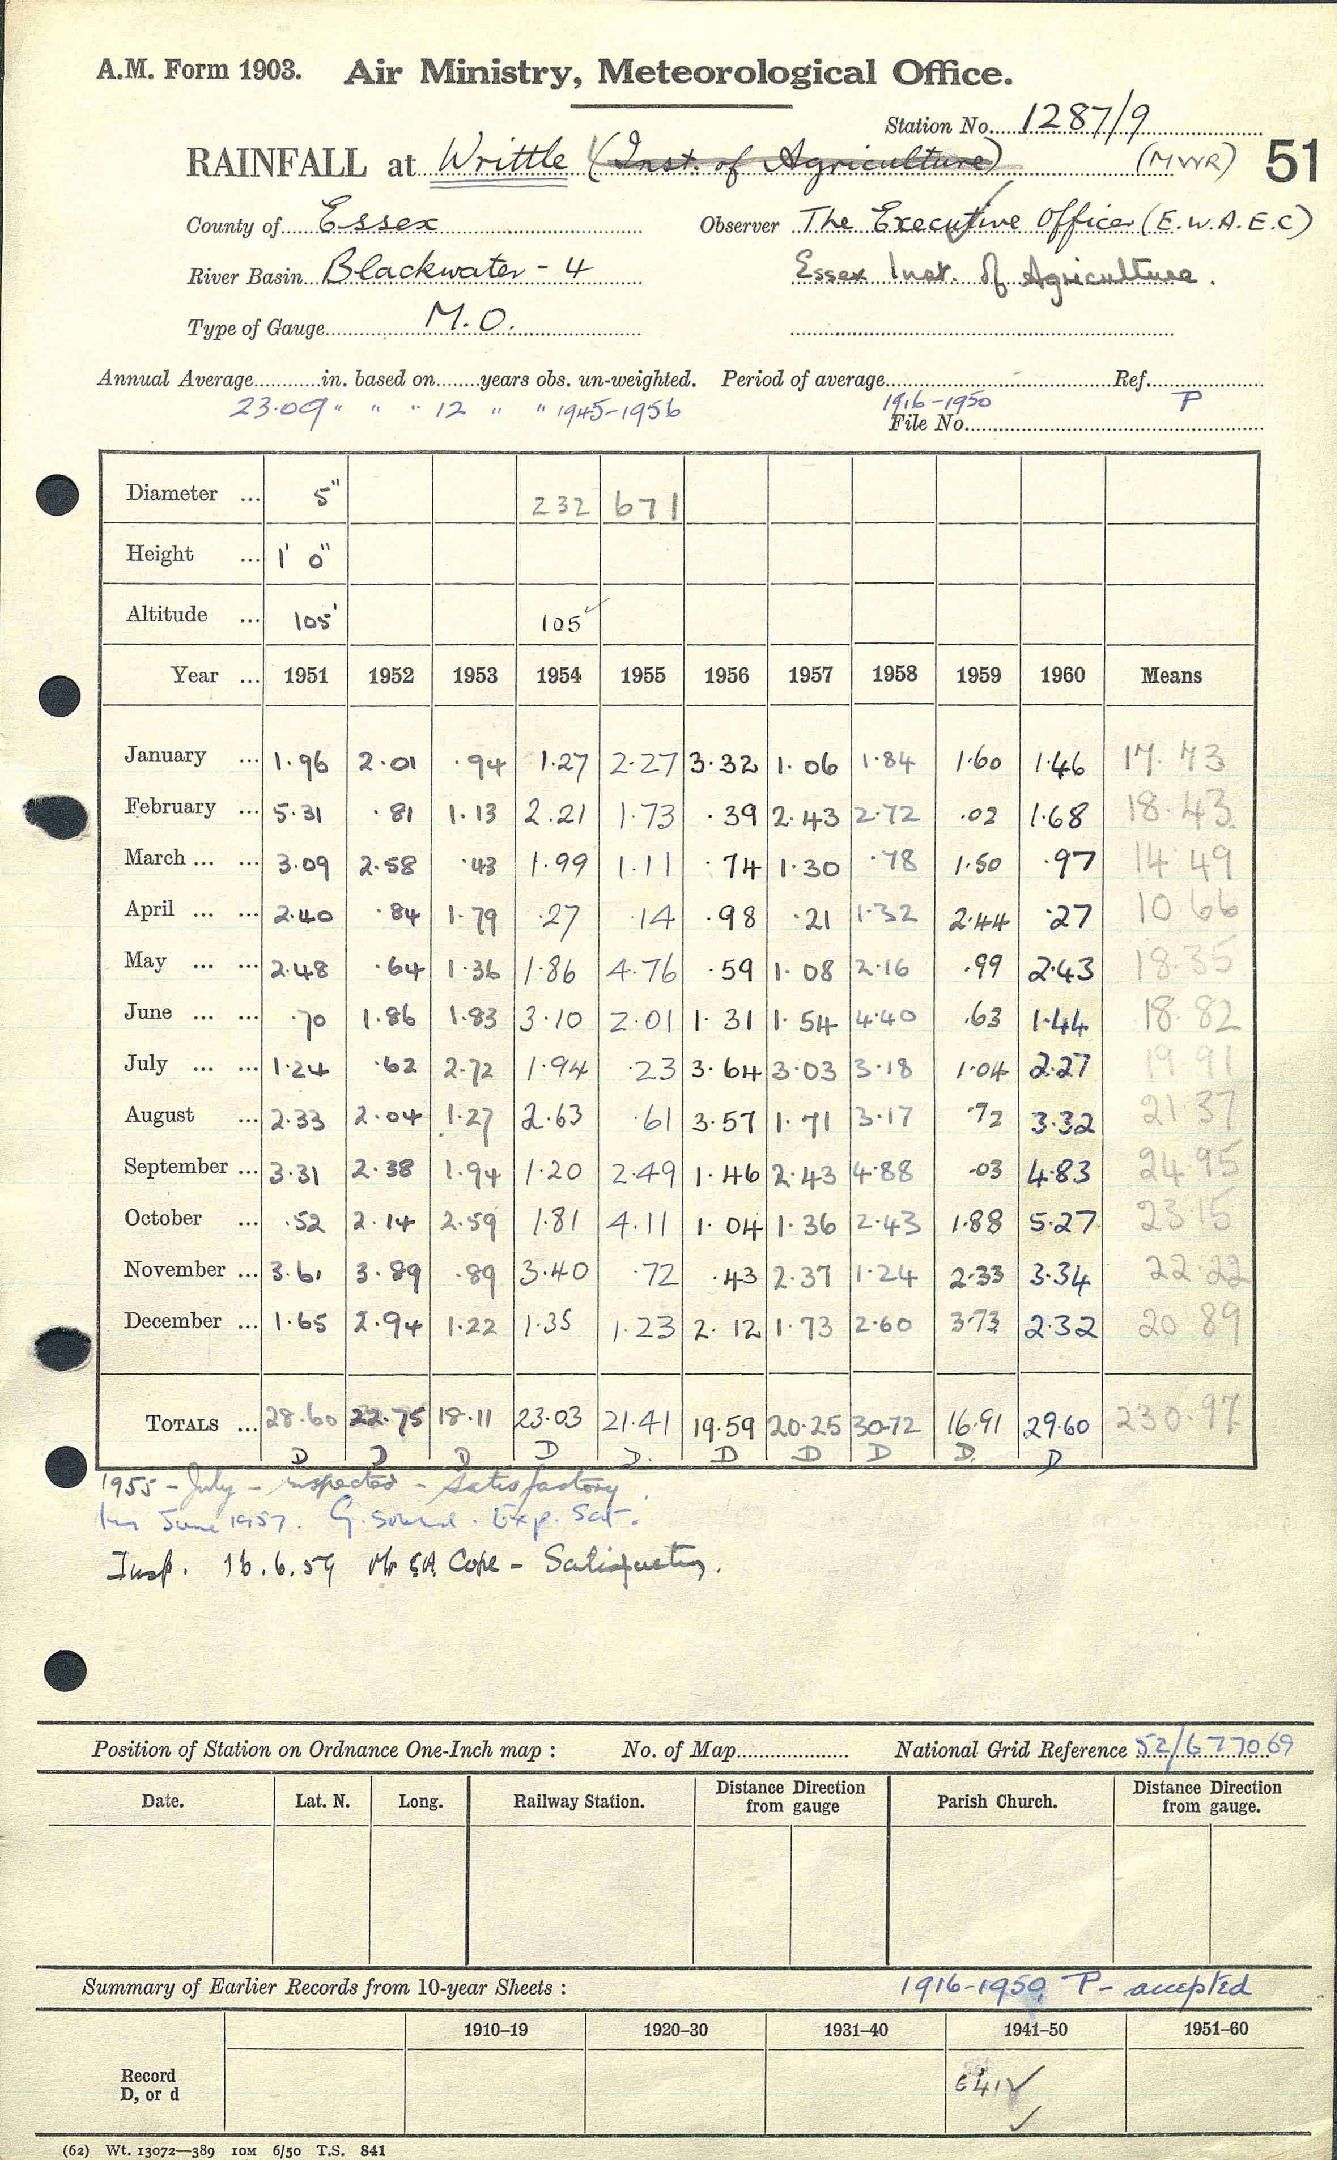 A.M. Form 1903. Air Ministry, Meteorological Office.
Station No. 1287/9
RAINFALL at Writtle (Inst. of Agriculture) (MWR) 51
County of Essex Observer The Executive Officer (E.W.A.E.C)
River Basin Blackwater - 4 Essex Inst. of Agriculture.
Type of Gauge M.O.
Annual Average in. based on years obs. un-weighted. Period of average Ref.
23.09 " " " 12 " " 1945-1956 1916-1950 P
File No.
Diameter ... 5" 232 671
Height ... 1' 0"
Altitude ... 105' 105
Year ... 1951 1952 1953 1954 1955 1956 1957 1958 1959 1960 Means
January ... 1.96 2.01 .94 1.27 2.27 3.32 1.06 1.84 1.60 1.46 17.73
February ... 5.31 .81 1.13 2.21 1.73 .39 2.43 2.72 .02 1.68 18.43
March ... ... 3.09 2.58 .43 1.99 1.11 .74 1.30 .78 1.50 .97 14.49
April ... ... 2.40 .84 1.79 .27 .14 .98 .21 1.32 2.44 .27 10.66
May ... ... 2.48 .64 1.36 1.86 4.76 .59 1.08 2.16 .99 2.43 18.35
June ... ... .70 1.86 1.83 3.10 2.01 1.31 1.54 4.40 .63 1.44 18.82
July ... ... 1.24 .62 2.72 1.94 .23 3.64 3.03 3.18 1.04 2.27 19.91
August ... 2.33 2.04 1.27 2.63 .61 3.57 1.71 3.17 .72 3.32 21.37
September ... 3.31 2.38 1.94 1.20 2.49 1.46 2.43 4.88 .03 4.83 24.95
October ... .52 2.14 2.59 1.81 4.11 1.04 1.36 2.43 1.88 5.27 23.15
November ... 3.61 3.89 .89 3.40 .72 .43 2.37 1.24 2.33 3.34 22.22
December ... 1.65 2.94 1.22 1.35 1.23 2.12 1.73 2.60 3.73 2.32 20.89
TOTALS ... 28.60 22.75 18.11 23.03 21.41 19.59 20.25 30.72 16.91 29.60 230.97
D D D D D. D D D D. D
1955 - July - inspected - satisfactory.
June 1957. G. Exp. Sat.
Insp. 16.6.59 Mr Cope - Satisfactory.
Position of Station on Ordnance One-Inch map : No. of Map National Grid Reference 52/677069
Date. Lat. N. Long. Railway Station. Distance Direction from gauge Parish Church. Distance Direction from gauge.
Summary of Earlier Records from 10-year Sheets : 1916-1950, P - accepted
1910-19 1920-30 1931-40 1941-50 1951-60
Record
D, or d
(62) Wt. 13072—389 10M 6/50 T.S. 841